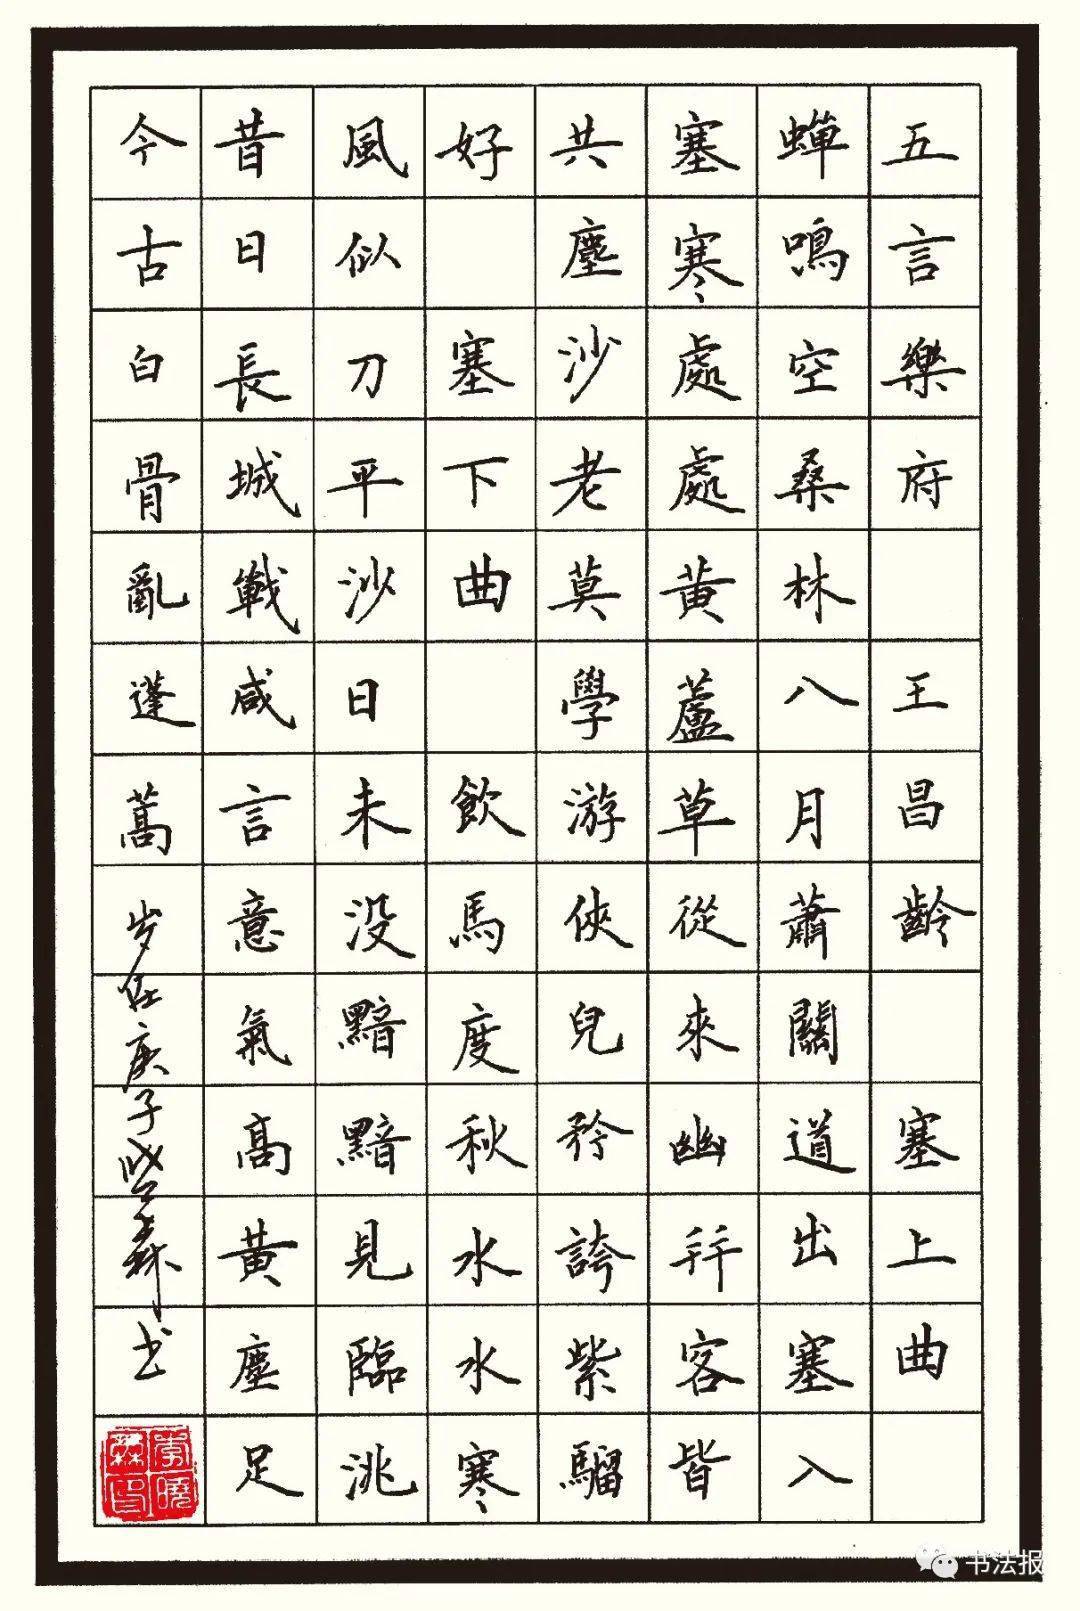 五言樂府 王昌齡 塞上曲
蟬鳴空桑林八月蕭關道出塞入
塞寒處處黄蘆草從來幽并客皆
共塵沙老莫學游俠兒矜誇紫騮
好 塞下曲 飲馬度秋水水寒
風似刀平沙日未没黯黯見臨洮
昔日長城戰咸言意氣高黄塵足
今古白骨亂蓬蒿 岁在庚子 森书
书法报